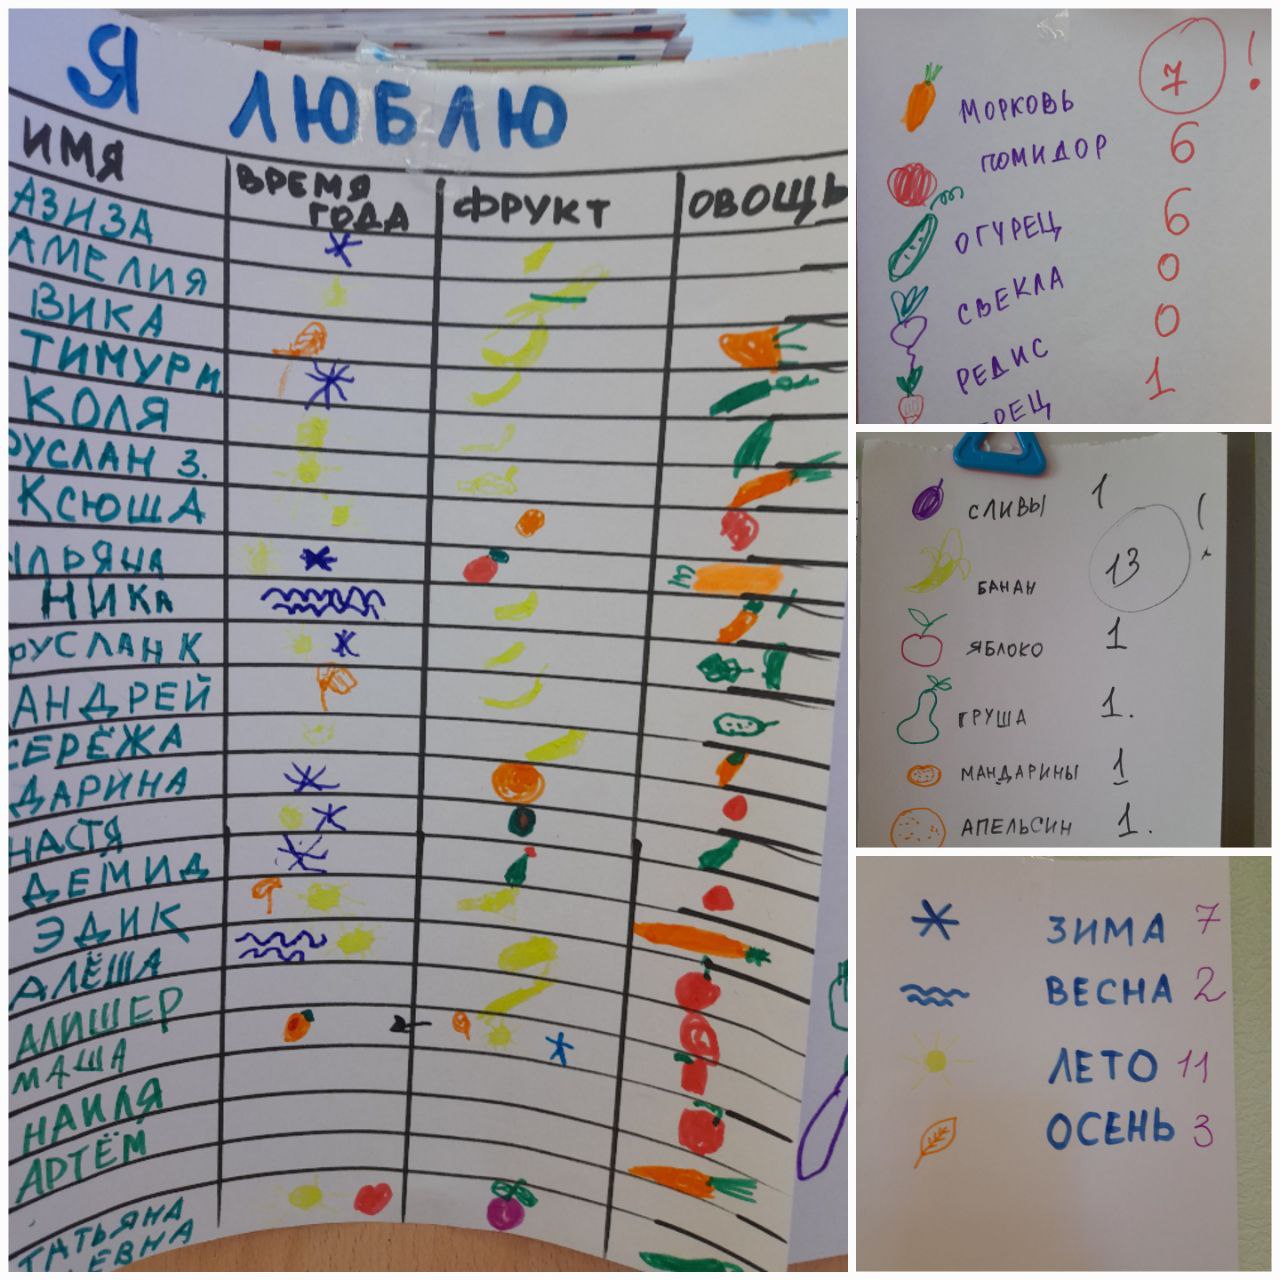 Я ЛЮБЛЮ
ИМЯ
ВРЕМЯ ГОДА
ФРУКТ
ОВОЩЬ
АЗИЗА
АМЕЛИЯ
ВИКА
ТИМУР М.
КОЛЯ
РУСЛАН З.
КСЮША
ИЛЬЯНА
НИКА
РУСЛАН К
АНДРЕЙ
СЕРЁЖА
ДАРИНА
НАСТЯ
ДЕМИД
ЭДИК
АЛЁША
АЛИШЕР
МАША
НАИЛЯ
АРТЁМ
ТАТЬЯНА
ЕВНА
МОРКОВЬ 7 !
ПОМИДОР 6
ОГУРЕЦ 6
СВЕКЛА 0
РЕДИС 0
РЕЦ 1
СЛИВЫ 1
БАНАН 13 !
ЯБЛОКО 1
ГРУША 1.
МАНДАРИНЫ 1
АПЕЛЬСИН 1.
ЗИМА 7
ВЕСНА 2
ЛЕТО 11
ОСЕНЬ 3